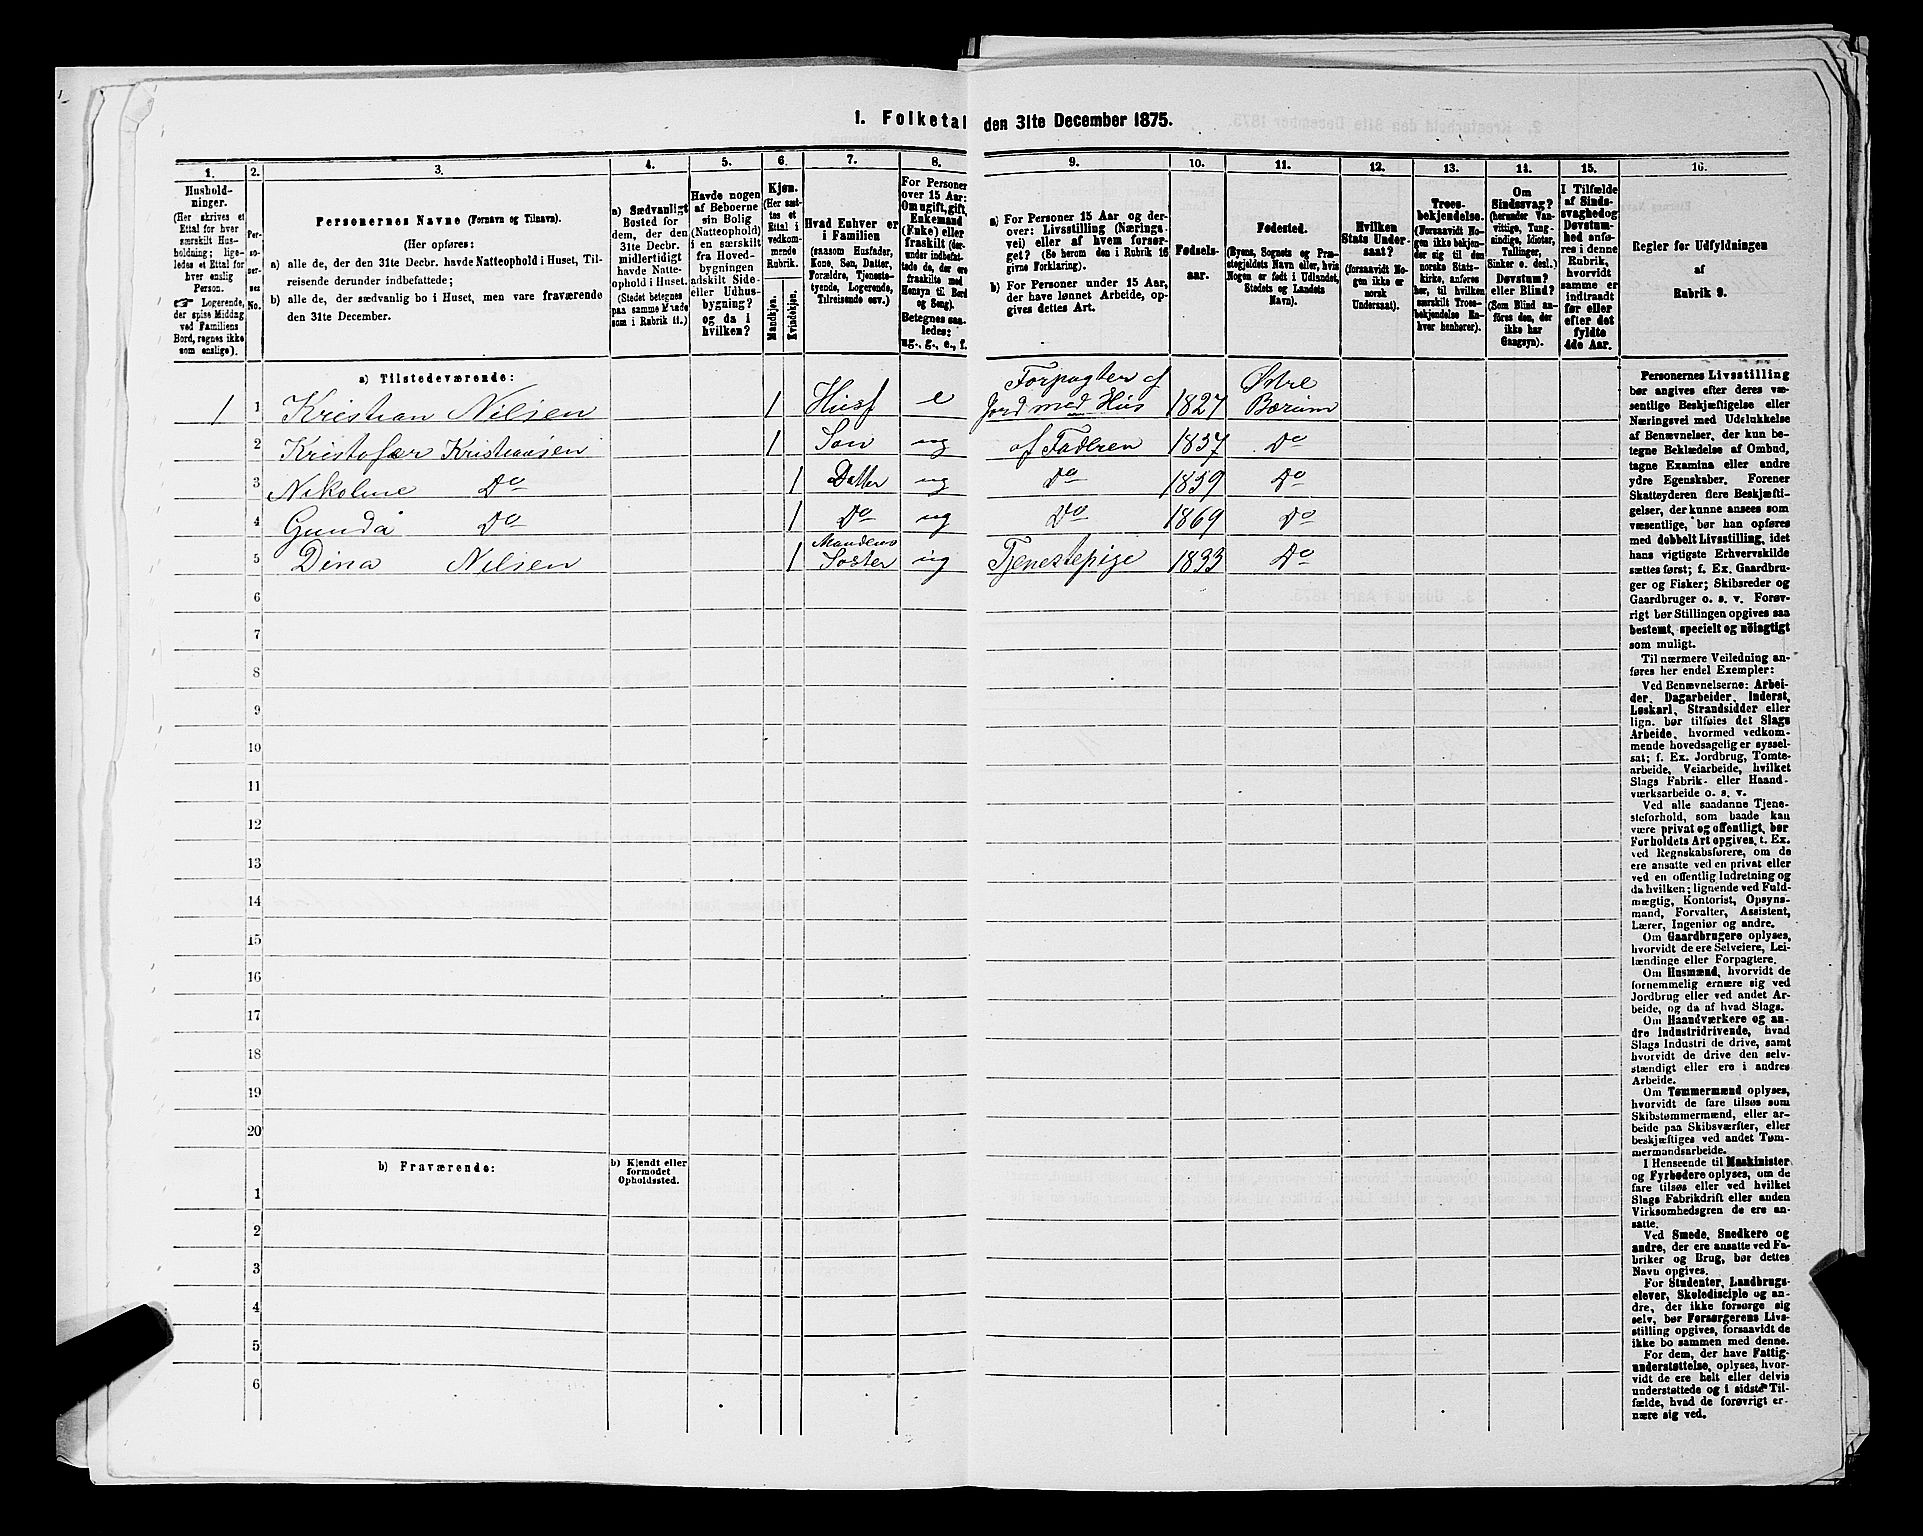 1. Folketal den 31te December 1875.
1.
Hushold-
ninger.
(Her skrives et
Ettal for hver
særskilt Hus-
holdning; lige-
ledes et Ettal for
hver enslig
Person.
☞ Logerende,
der spise Middag
ved Familiens
Bord, regnes ikke
som enslige).
2.
Per-
so-
ner-
nes
No.
3.
Personernes Navne (Fornavn og Tilnavn).
(Her opføres:
a) alle de, der den 31te Decbr. havde Natteophold i Huset, Til-
reisende derunder indbefattede;
b) alle de, der sædvanlig bo i Huset, men vare fraværende
den 31te December.
4.
a) Sædvanligt
Bosted for
dem, der den
31te Decbr.
midlertidigt
havde Natte-
ophold i Huset.
(Stedet betegnes
paa samme Maade
som i Rubrik 11.)
5.
Havde nogen
af Beboerne
sin Bolig
(Natteophold)
i en særskilt
fra Hoved-
bygningen
adskilt Side-
eller Udhus-
bygning?
og da i
hvilken?
6.
Kjøn.
(Her sæt-
tes et
Ettal i
vedkom-
mende
Rubrik.
Mandkjøn.
Kvindekjøn.
7.
Hvad Enhver er
i Familien
(saasom Husfader,
Kone, Søn, Datter,
Forældre, Tjeneste-
tyende, Logerende,
Tilreisende osv.)
8.
For Personer
over 15 Aar:
Om ugift, gift,
Enkemand
(Enke) eller
fraskilt (der-
under indbefat-
tede de, der ere
fraskilte med
Hensyn til Bord
og Seng).
Betegnes saa-
ledes:
ug., g., e., f.
9.
a) For Personer 15 Aar og der-
over: Livsstilling (Nærings-
vei) eller af hvem forsør-
get? (Se herom den i Rubrik 16
givne Forklaring).
b) For Personer under 15 Aar,
der have lønnet Arbeide, op-
gives dettes Art.
10.
Fødsels-
aar.
11.
Fødested.
(Byens, Sognets og Præ-
stegjeldets Navn eller, hvis
Nogen er født i Udlandet,
Stedets og Landets
Navn).
12.
Hvilken
Stats Under-
saat?
(forsaavidt No-
gen ikke er
norsk
Undersaat).
13.
Troes-
bekjendelse.
(Forsaavidt No-
gen ikke bekjen-
der sig til den
norske Stats-
kirke, anføres
her, til hvilken
særskilt Troes-
bekjendelse En-
hver henhører).
14.
Om
Sindssvag?
(herunder Van-
vittige, Tung-
sindige, Idioter,
Tullinger,
Sinker o. desl.)
Døvstum?
eller Blind?
(Som Blind an-
føres den, der
ikke har
Gangsyn).
15.
I Tilfælde
af Sinds-
svaghed og
Døvstum-
hed anfø-
res i denne
Rubrik,
hvorvidt
samme er
indtraadt
før eller
efter det
fyldte
4de Aar.
16.
Regler for Udfyldningen
af
Rubrik 9.
a) Tilstedeværende:
1 1 Kristian Nilsen 1 Husf e Forpagter af Jord med Hus 1827 Østre Bærum
2 Kristofær Kristiansen 1 Søn ug af Faderen 1857 Do
3 Nikoline Do 1 Datter ug Do 1859 Do
4 Gunda Do 1 Do ug Do 1869 Do
5 Dina Nilsen 1 Mandens Søster ug Tjenestepige 1833 Do
6
7
8
9
10
11
12
13
14
15
16
17
18
19
20
b) Fraværende:
b) Kjendt eller
formodet
Opholdssted.
1
2
3
4
5
6
Personernes Livsstilling
bør angives efter deres væ-
sentlige Beskjæftigelse eller
Næringsvei med Udelukkelse
af Benævnelser, der kun be-
tegne Beklædelse af Ombud,
tagne Examina eller andre
ydre Egenskaber. Forener
Skatteyderen flere Beskjæfti-
gelser, der kunne ansees som
væsentlige, bør han opføres
med dobbelt Livsstilling, idet
hans vigtigste Erhvervskilde
sættes først; f. Ex. Gaardbru-
ger og Fisker; Skibsreder og
Gaardbruger o. s. v. Forøv-
rigt bør Stillingen opgives saa
bestemt, specielt og nöiagtigt
som muligt.
Til nærmere Veiledning an-
føres her endel Exempler:
Ved Benævnelserne: Arbei-
der, Dagarbeider, Inderst,
Løskarl, Strandsidder eller
lign. bør tilføies det Slags
Arbeide, hvormed vedkom-
mende hovedsagelig er syssel-
sat; f. Ex. Jordbrug, Tomte-
arbeide, Veiarbeide, hvilket
Slags Fabrik- eller Haand-
værksarbeide o. s. v.
Ved alle saadanne Tjene-
steforhold, som baade kan
være privat og offentligt, bør
Forholdets Art opgives, t. Ex.
ved Regnskabsførere, om de
ere ansatte ved en privat eller
ved en offentlig Indretning og
da hvilken; lignende ved Fuld-
mægtig, Kontorist, Opsyns-
mand, Forvalter, Assistent,
Lærer, Ingeniør og andre.
Om Gaardbrugere oplyses,
hvorvidt de ere Selveiere, Lei-
lændinge eller Forpagtere.
Om Husmænd, hvorvidt de
fornemmelig ernære sig ved
Jordbrug eller ved andet Ar-
beide, og da af hvad Slags.
Om Haandværkere og an-
dre Industridrivende, hvad
Slags Industri de drive, samt
hvorvidt de drive den selv-
stændigt eller ere i andres
Arbeide.
Om Tømmermænd oplyses,
hvorvidt de fare tilsøs som
Skibstømmermænd, eller ar-
beide paa Skibsværfter, eller
beskjæftiges ved andet Tøm-
mermandsarbeide.
I Henseende til Maskinister
og Fyrbødere oplyses, om de
fare tilsøs eller ved hvilket
Slags Fabrikdrift eller anden
Virksomhedsgren de ere an-
satte.
Ved Smede, Snedkere og
andre, der ere ansatte ved Fa-
briker og Brug, bør dettes
Navn opgives.
For Studenter, Landbrugs-
elever, Skoledisciple og an-
dre, der ikke forsørge sig
selv, bør Forsørgerens Livs-
stilling opgives, forsaavidt de
ikke bo sammen med denne.
For dem, der have Fattig-
understøttelse, oplyses, hvor-
vidt de ere helt eller delvis
understøttede og i sidste Til-
fælde, hvad de forøvrigt er-
nære sig ved.